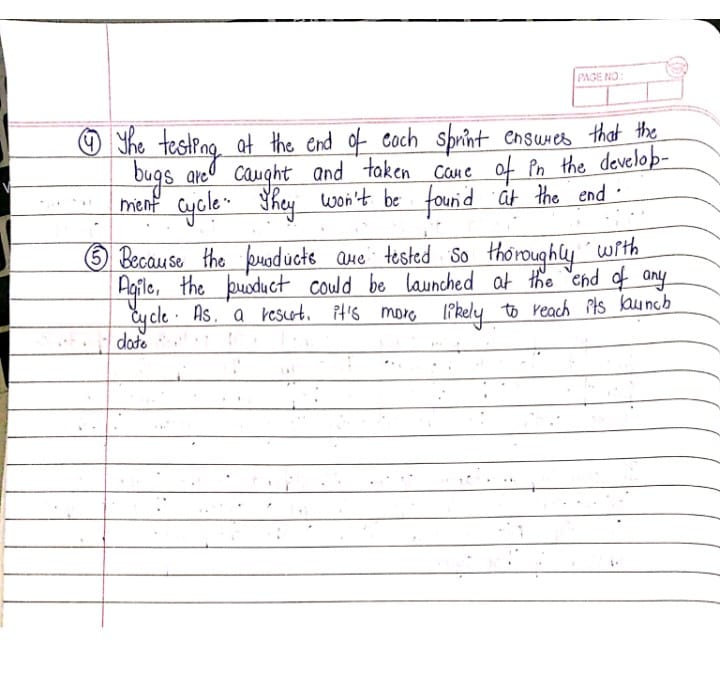 PAGE NO:
④ The testing at the end of each sprint ensures that the
bugs are caught and taken care of in the develop-
ment cycle. They won't be found at the end.
⑤ Because the products are tested so thoroughly with
Agile, the product could be launched at the end of any
cycle. As. a result. it's more likely to reach its launch
date